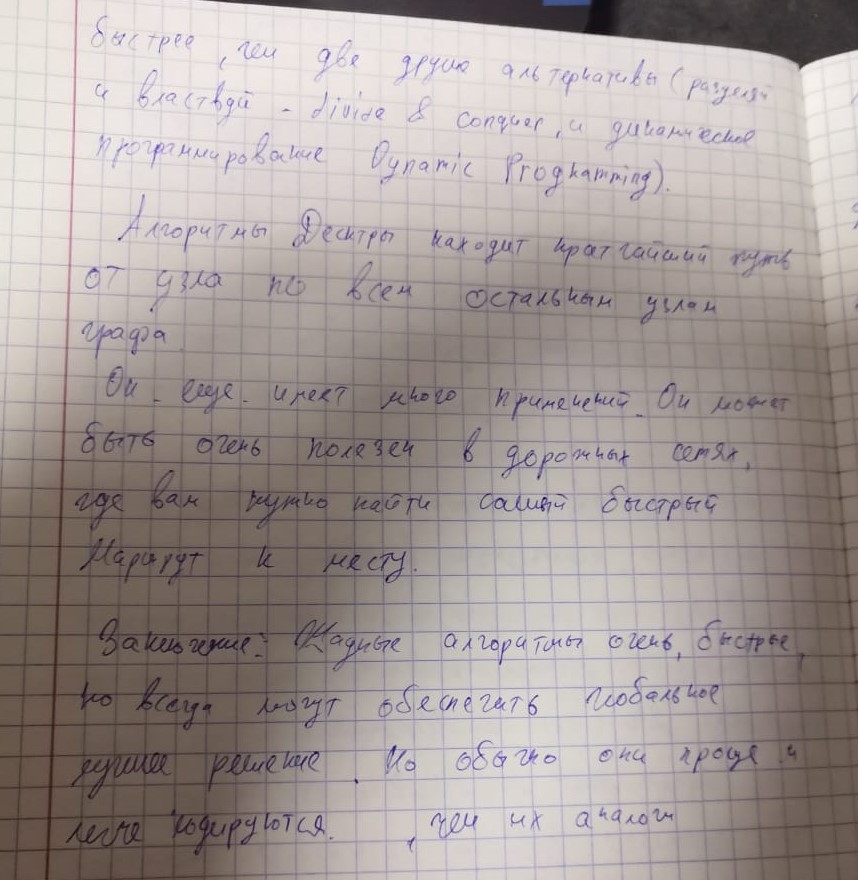 быстрее, чем две другие альтернативы (разделяй
и властвуй - divide & conquer, и динамическое
программирование Dynamic Programming).
Алгоритмы Дейктры находит кратчайший путь
от узла по всем остальным узлам
графа.
Он еще имеет много применений. Он может
быть очень полезен в дорожных сетях,
где вам нужно найти самый быстрый
Маршрут к месту.
Заключение: Жадные алгоритмы очень, быстрые,
но всегда могут обеспечить глобальное
лучшее решение. Но обычно они проще и
легче кодируются. , чем их аналоги